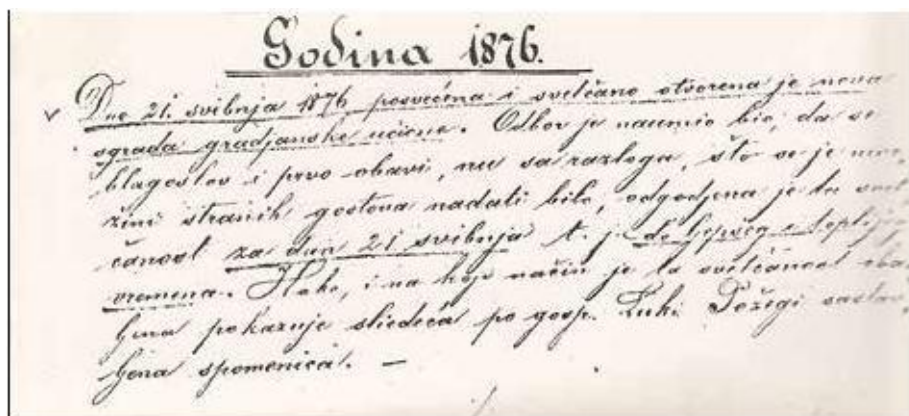 Godina 1876.
Dne 21. svibnja 1876 posvećena i svetčano otvorena je nova
sgrada gradjanske učione. Odbor je naumio bio, da se
blagoslov i prvo obavi, nu sa razloga, što se je mno,
žini stranih gostova nadati bilo, odgodjena je ta svet
čanost za dan 21 svibnja t. j. do ljepšeg i toplijeg
vremena. Kako, i na koji način je ta svetčanost oba,
ljena pokazuje sliedeća po gosp. Luki sastav
ljena spomenica. —